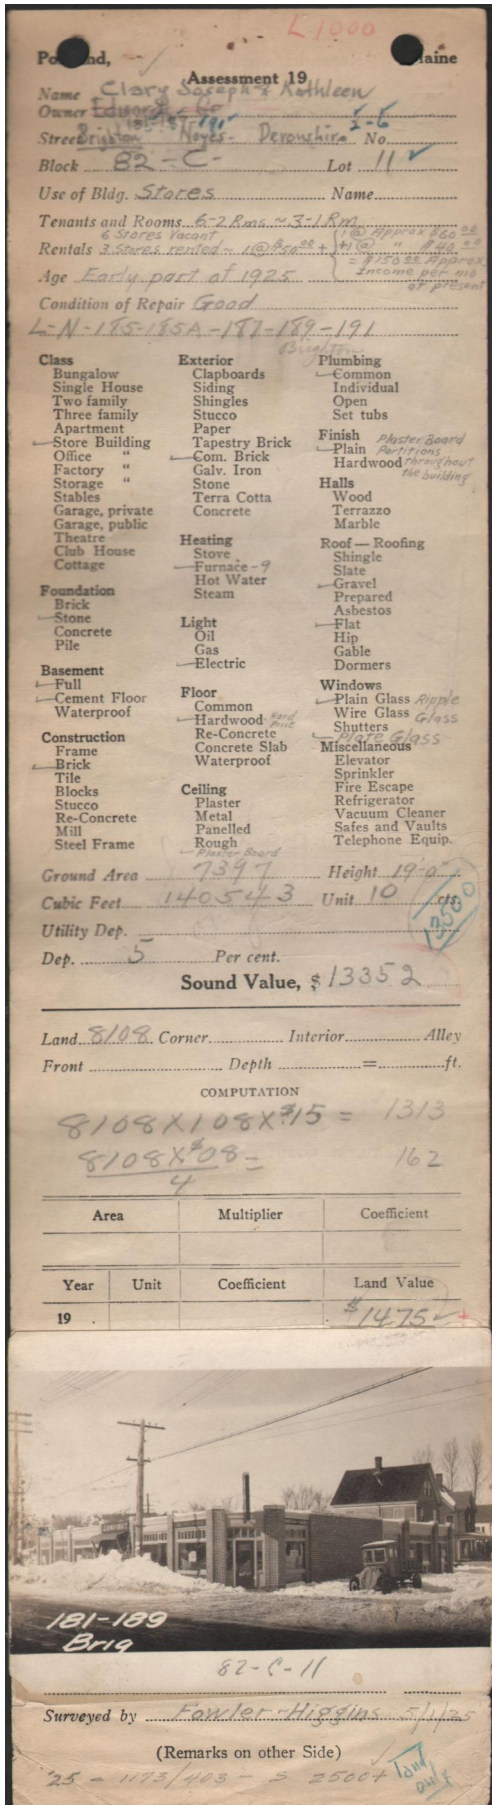 L 1000
Portland, Maine
Assessment 19
Name Clary Joseph & Kathleen
Owner Edward Co
185-187 191 2-6
Street Brighton Noyes - Devonshire No.
Block 82-C- Lot 11 ✓
Use of Bldg. Stores Name
Tenants and Rooms 6-2 Rms ~ 3-1 Rm
6 Stores Vacant
Rentals 3 Stores rented ~ 1@$50.00 + { 1@ Approx $60.00
+1@ " $40.00
= $150.00 Approx.
Income per mo
at present
Age Early part of 1925
Condition of Repair Good
L-N-185-185A-187-189-191
Brighton
Class
Bungalow
Single House
Two family
Three family
Apartment
✓ Store Building
Office "
Factory "
Storage "
Stables
Garage, private
Garage, public
Theatre
Club House
Cottage
Foundation
Brick
✓ Stone
Concrete
Pile
Basement
✓ Full
✓ Cement Floor
Waterproof
Construction
Frame
✓ Brick
Tile
Blocks
Stucco
Re-Concrete
Mill
Steel Frame
Exterior
Clapboards
Siding
Shingles
Stucco
Paper
Tapestry Brick
✓ Com. Brick
Galv. Iron
Stone
Terra Cotta
Concrete
Heating
Stove
✓ Furnace - 9
Hot Water
Steam
Light
Oil
Gas
✓ Electric
Floor
Common
✓ Hardwood Hard Pine
Re-Concrete
Concrete Slab
Waterproof
Ceiling
Plaster
Metal
Panelled
Rough
✓ Plaster Board
Plumbing
✓ Common
Individual
Open
Set tubs
Finish Plaster Board
✓ Plain Partitions
Hardwood throughout
the building
Halls
Wood
Terrazzo
Marble
Roof — Roofing
Shingle
Slate
✓ Gravel
Prepared
Asbestos
✓ Flat
Hip
Gable
Dormers
Windows
✓ Plain Glass Ripple
Wire Glass Glass
Shutters
✓ Plate Glass
Miscellaneous
Elevator
Sprinkler
Fire Escape
Refrigerator
Vacuum Cleaner
Safes and Vaults
Telephone Equip.
Ground Area 7397 Height 19'-0"
Cubic Feet 140543 Unit 10 cts.
13500
Utility Dep.
Dep. 5 Per cent.
Sound Value, $ 13352
Land 8108 Corner Interior Alley
Front Depth = ft.
COMPUTATION
8108 X 108 X $.15 = 1313
8108 X $.08 = 162
4
Area Multiplier Coefficient
Year Unit Coefficient Land Value
19 . $1475 ✓ +
181-189
Brig
82-C-11
Surveyed by Fowler-Higgins 5/1/25
(Remarks on other Side)
'25 = 1173/403 - S 2500 +